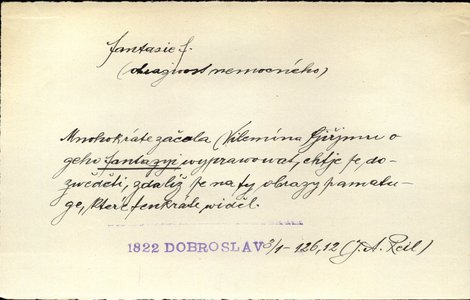 fantasie f.
(dragnost nemocného)
Mnohokráte začala (Vilemína Giřjmu o
geho fantazyi wyprawowat, chtje se, do-
zwěděti, zdaliž se na ty obrazy pamatu-
ge, které tenkráte widěl.
1822 DOBROSLAV 3/1-126,12 (J. A. Reil)